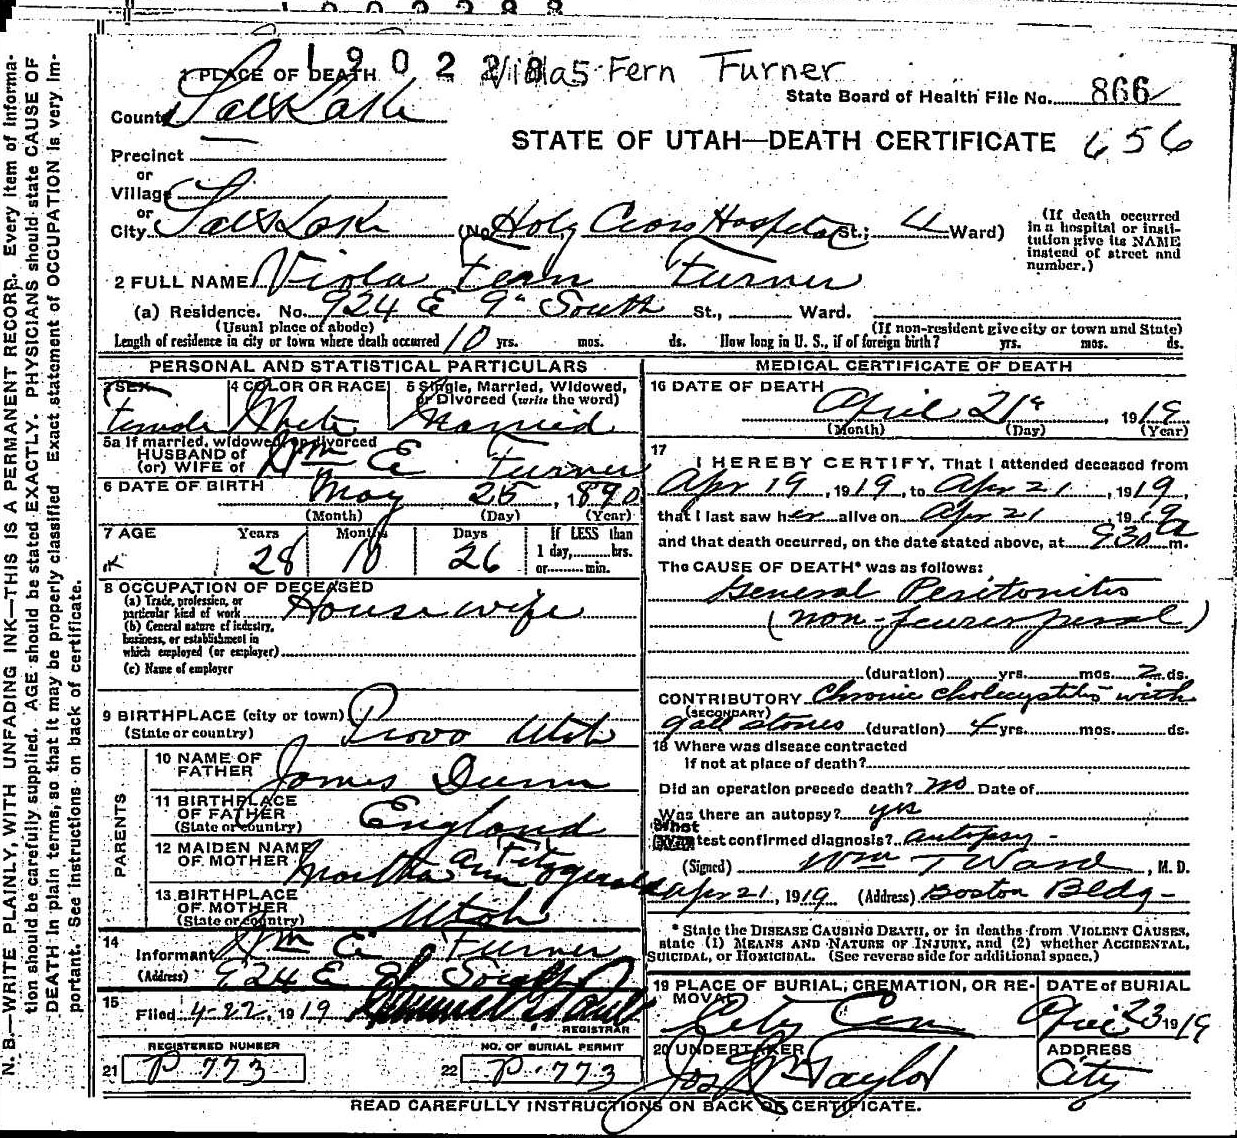 1 9 0 2 2 8 8
1 9 0 2 2 Violas Fern Turner
1 PLACE OF DEATH
State Board of Health File No. 866
County Salt Lake
STATE OF UTAH—DEATH CERTIFICATE 656
Precinct
or
Village
or
City Salt Lake (No. Holy Cross Hospital St.; 4 Ward)
(If death occurred in a hospital or institution give its NAME instead of street and number.)
2 FULL NAME Viola Fern Turner
(a) Residence. No. 924 E 9" South St., Ward.
(Usual place of abode) (If non-resident give city or town and State)
Length of residence in city or town where death occurred 10 yrs. mos. ds. How long in U. S., if of foreign birth? yrs. mos. ds.
PERSONAL AND STATISTICAL PARTICULARS
3 SEX 4 COLOR OR RACE 5 Single, Married, Widowed,
or Divorced (write the word)
Female White Married
5a If married, widowed, or divorced
HUSBAND of
(or) WIFE of Wm E Turner
6 DATE OF BIRTH May 25, 1890
(Month) (Day) (Year)
7 AGE Years Months Days If LESS than
28 10 26 1 day, hrs.
or min.
8 OCCUPATION OF DECEASED
(a) Trade, profession, or
particular kind of work Housewife
(b) General nature of industry,
business, or establishment in
which employed (or employer)
(c) Name of employer
9 BIRTHPLACE (city or town)
(State or country) Provo Utah
PARENTS
10 NAME OF
FATHER James Dunn
11 BIRTHPLACE
OF FATHER England
(State or country)
12 MAIDEN NAME
OF MOTHER Martha Ann Fitzgerald
13 BIRTHPLACE
OF MOTHER Utah
(State or country)
14
Informant Wm E Turner
(Address) 924 E 9 South
15
Filed 4-22, 1919
REGISTRAR
REGISTERED NUMBER NO. OF BURIAL PERMIT
21 P 773 22 P. 773
MEDICAL CERTIFICATE OF DEATH
16 DATE OF DEATH
April 21st, 1919
(Month) (Day) (Year)
17
I HEREBY CERTIFY, That I attended deceased from
Apr 19, 1919, to Apr 21, 1919,
that I last saw her alive on Apr 21 1919
and that death occurred, on the date stated above, at 930 a m.
The CAUSE OF DEATH* was as follows:
General Peritonitis
(non-puerperal)
(duration) yrs. mos. 2 ds.
CONTRIBUTORY Chronic cholecystitis with
(SECONDARY)
gall stones (duration) 4 yrs. mos. ds.
18 Where was disease contracted
If not at place of death?
Did an operation precede death? no Date of
Was there an autopsy? yes
What test confirmed diagnosis? autopsy -
(Signed) Wm T Ward, M. D.
Apr 21, 1919 (Address) Boston Bldg -
* State the DISEASE CAUSING DEATH, or in deaths from VIOLENT CAUSES,
state (1) MEANS AND NATURE OF INJURY, and (2) whether ACCIDENTAL,
SUICIDAL, or HOMICIDAL. (See reverse side for additional space.)
19 PLACE OF BURIAL, CREMATION, OR RE- DATE of BURIAL
MOVAL
City Cem April 23 1919
20 UNDERTAKER ADDRESS
Jos Wm Taylor City
READ CAREFULLY INSTRUCTIONS ON BACK OF CERTIFICATE.
N. B.—WRITE PLAINLY, WITH UNFADING INK—THIS IS A PERMANENT RECORD. Every item of informa-
tion should be carefully supplied. AGE should be stated EXACTLY. PHYSICIANS should state CAUSE OF
DEATH in plain terms, so that it may be properly classified. Exact statement of OCCUPATION is very im-
portant. See instructions on back of certificate.